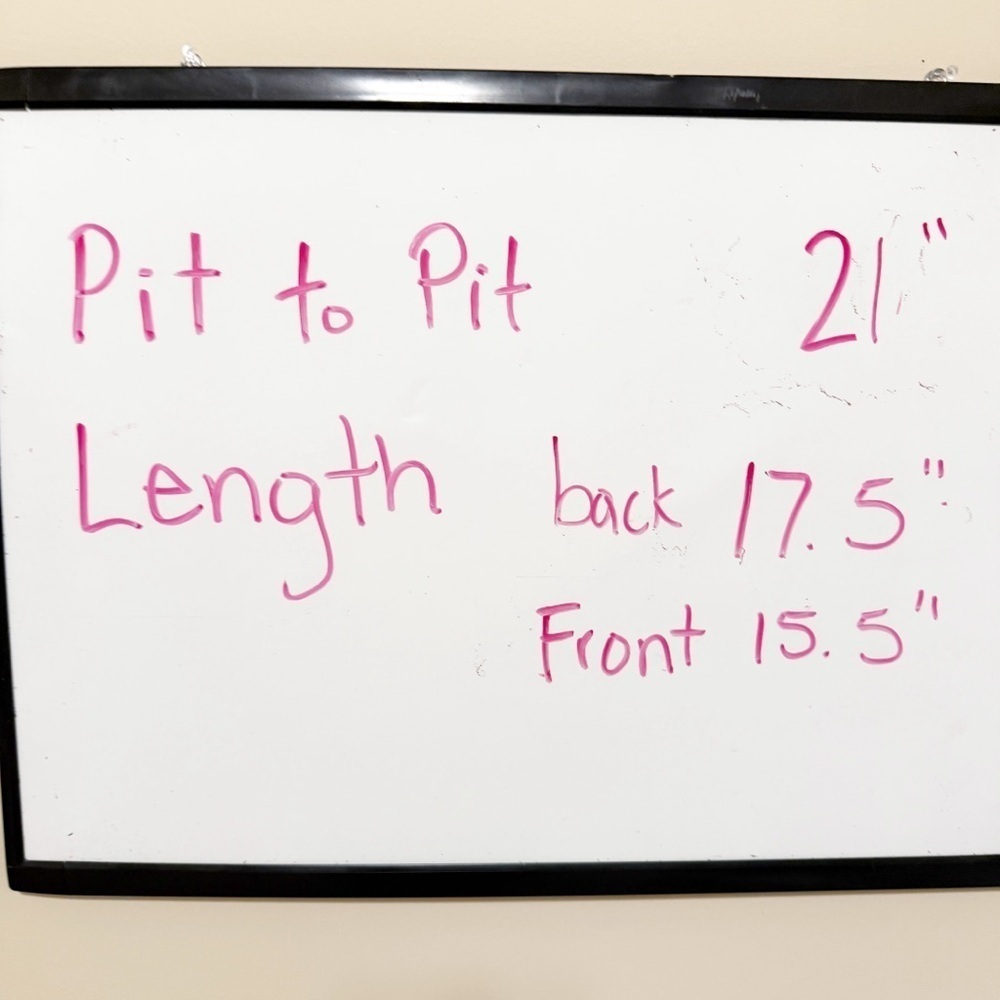 Pit to Pit 21"
Length back 17.5"
Front 15.5"